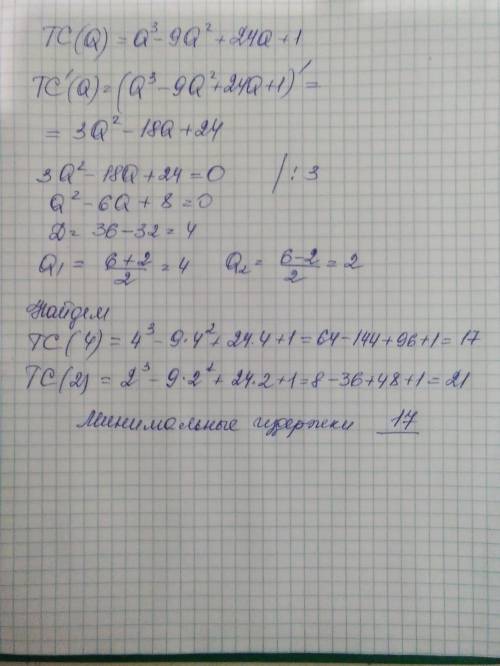 TC(Q) = Q³-9Q²+24Q+1
TC'(Q)=(Q³-9Q²+24Q+1)'=
= 3Q²-18Q+24
3Q²-18Q+24=0 /:3
Q²-6Q+8=0
D= 36-32=4
Q₁= (6+2)/2=4 Q₂= (6-2)/2=2
Найдем
TC(4)=4³-9·4²+24·4+1=64-144+96+1=17
TC(2)=2³-9·2²+24·2+1=8-36+48+1=21
Минимальные издержки 17